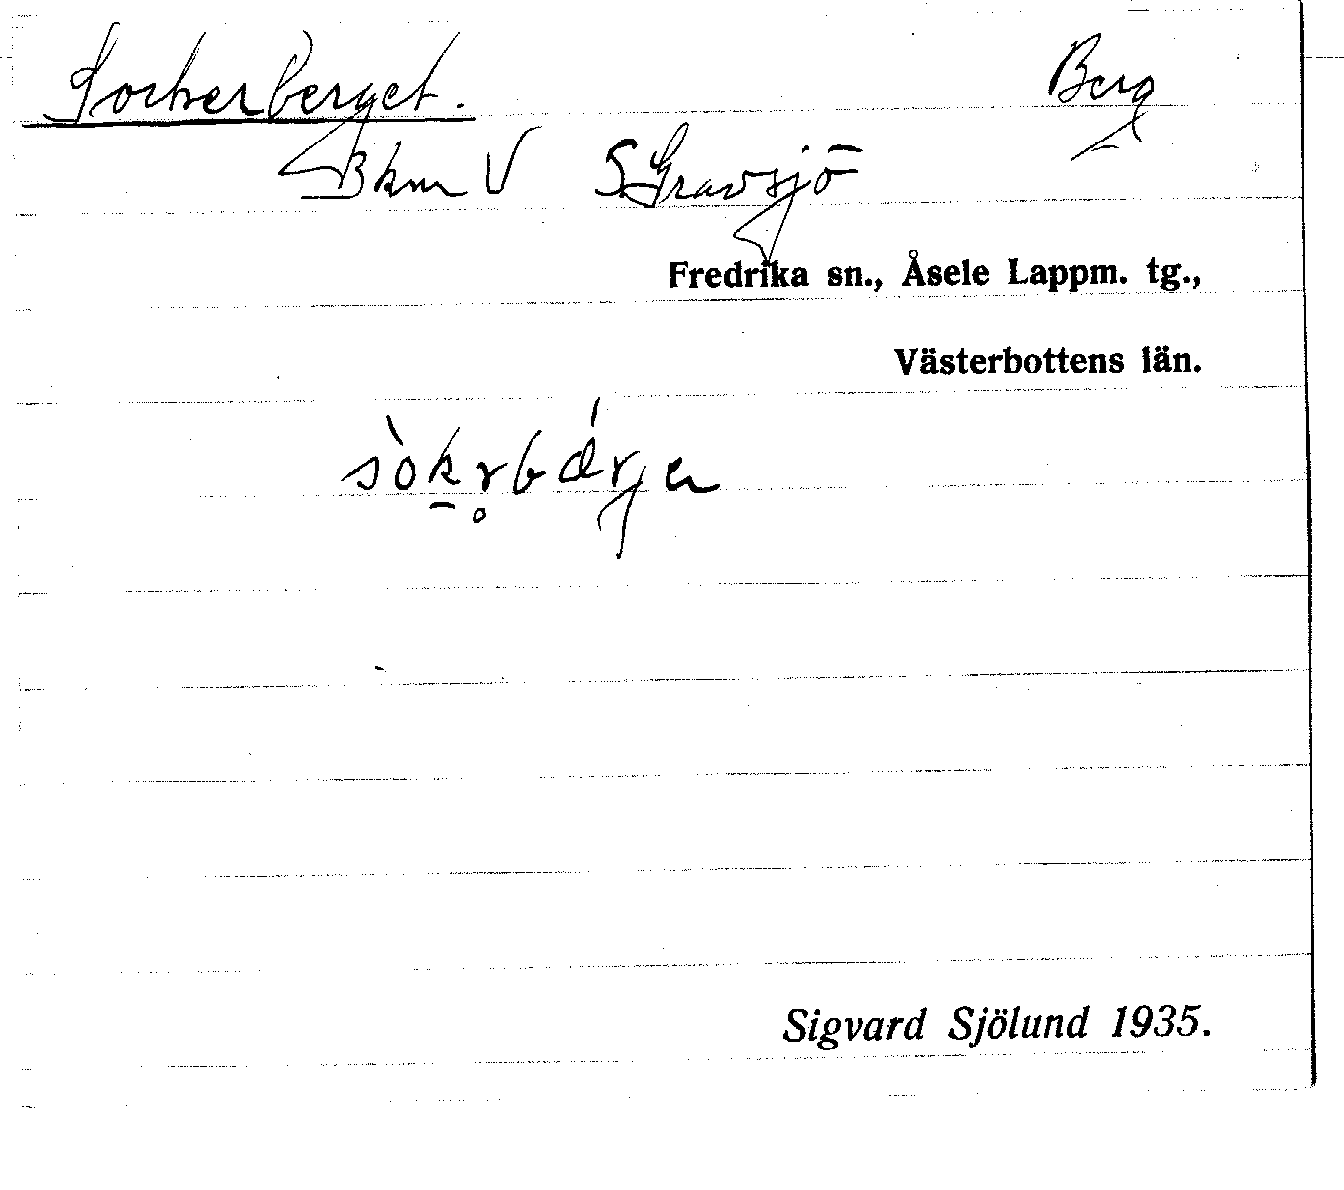 Sockerberget. Berg
3 km V S. Gravsjö
Fredrika sn., Åsele Lappm. tg.,
Västerbottens län.
sòk̠r̥bǽrjɐ
Sigvard Sjölund 1935.